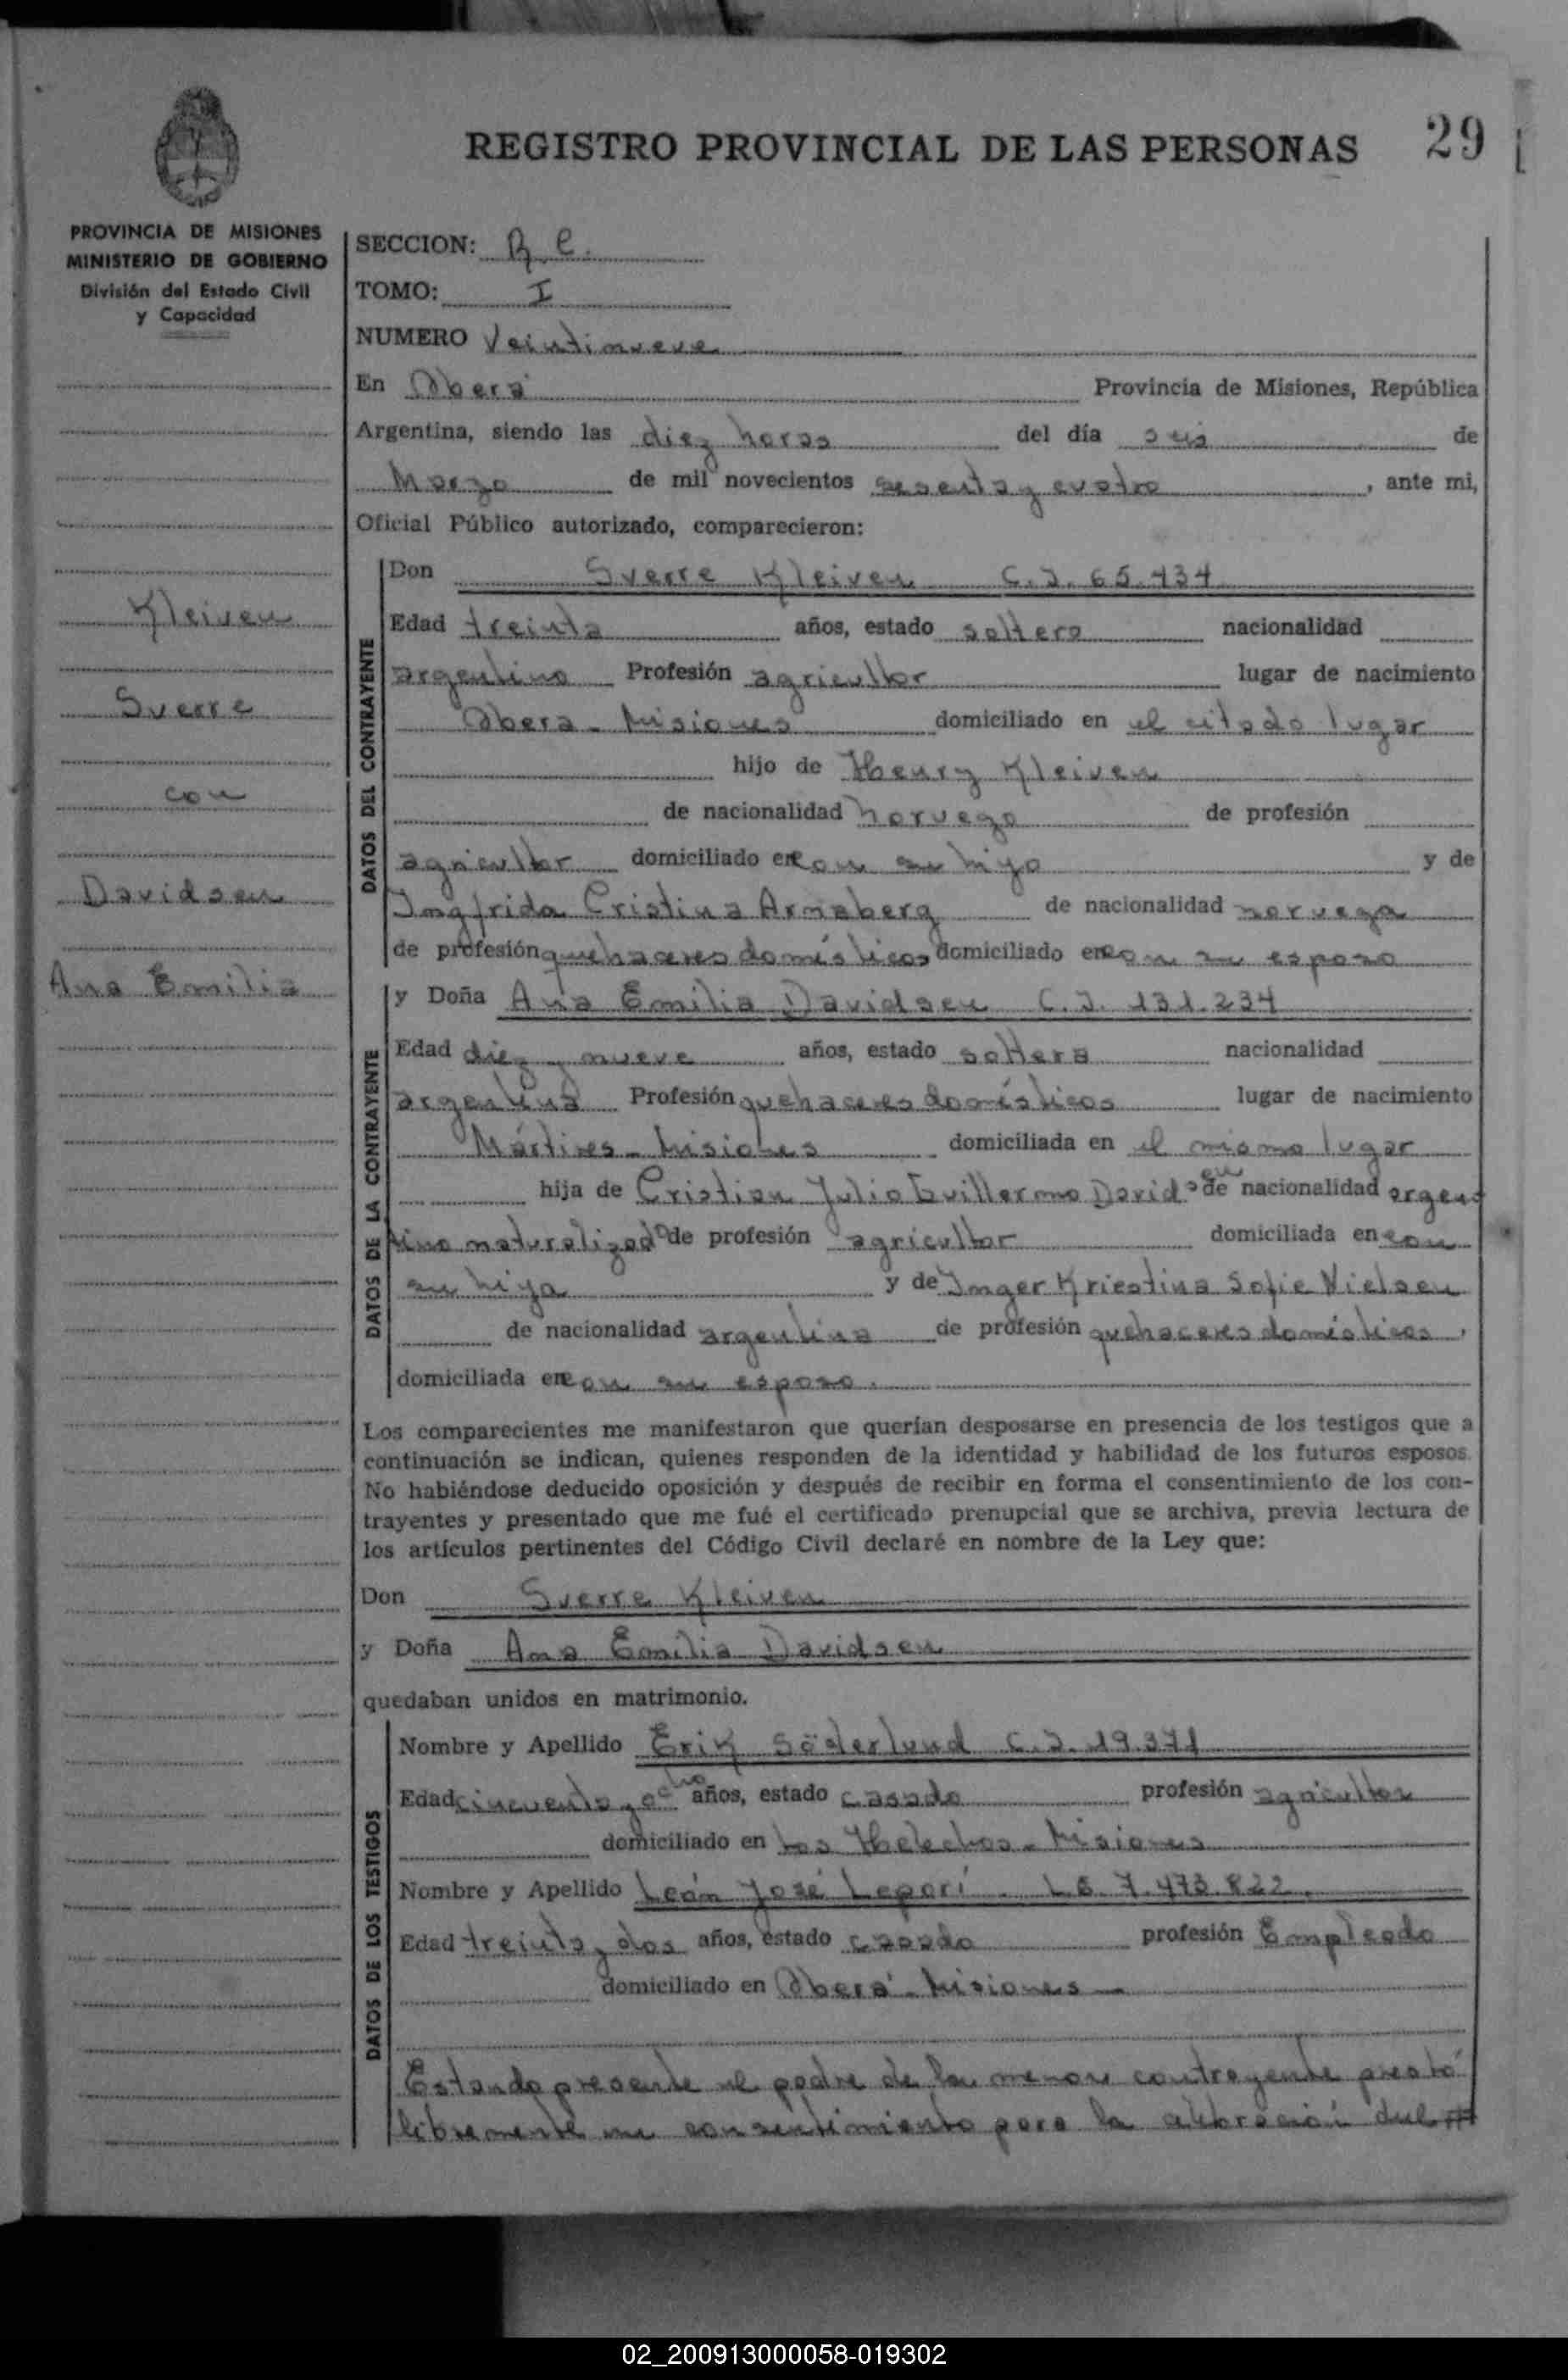 REGISTRO PROVINCIAL DE LAS PERSONAS 29
PROVINCIA DE MISIONES
MINISTERIO DE GOBIERNO
División del Estado Civil
y Capacidad
Kleiven
Sverre
con
Davidsen
Ana Emilia
SECCION: R. C.
TOMO: I
NUMERO Veintinueve
En Oberá Provincia de Misiones, República
Argentina, siendo las diez horas del día seis de
Marzo de mil novecientos sesenta y cuatro, ante mi,
Oficial Público autorizado, comparecieron:
DATOS DEL CONTRAYENTE
Don Sverre Kleiven C.I. 65.434
Edad treinta años, estado soltero nacionalidad
argentino Profesión agricultor lugar de nacimiento
Obera - Misiones domiciliado en el citado lugar
hijo de Henry Kleiven
de nacionalidad noruego de profesión
agricultor domiciliado en con su hijo y de
Ingfrida Cristina Arnaberg de nacionalidad noruega
de profesión quehaceres domésticos domiciliado en con su esposo
DATOS DE LA CONTRAYENTE
y Doña Ana Emilia Davidsen C.I. 131.234
Edad diez y nueve años, estado soltera nacionalidad
argentina Profesión quehaceres domésticos lugar de nacimiento
Mártires - Misiones domiciliada en el mismo lugar
hija de Cristian Julio Guillermo Davidsen de nacionalidad argen
tino naturalizado de profesión agricultor domiciliada en con
su hija y de Inger Kriestina Sofie Nielsen
de nacionalidad argentina de profesión quehaceres domésticos,
domiciliada en con su esposo.
Los comparecientes me manifestaron que querían desposarse en presencia de los testigos que a
continuación se indican, quienes responden de la identidad y habilidad de los futuros esposos.
No habiéndose deducido oposición y después de recibir en forma el consentimiento de los con-
trayentes y presentado que me fué el certificado prenupcial que se archiva, previa lectura de
los artículos pertinentes del Código Civil declaré en nombre de la Ley que:
Don Sverre Kleiven
y Doña Ana Emilia Davidsen
quedaban unidos en matrimonio.
DATOS DE LOS TESTIGOS
Nombre y Apellido Erik Söderlund C.I. 19.371
Edad cincuenta y ocho años, estado casado profesión agricultor
domiciliado en Los Helechos - Misiones
Nombre y Apellido León José Lepori - L.E. 7.473.822.
Edad treinta y dos años, estado casado profesión Empleado
domiciliado en Oberá - Misiones -
Estando presente el padre de la menor contrayente prestó
libremente su consentimiento para la celebración del
02_200913000058-019302